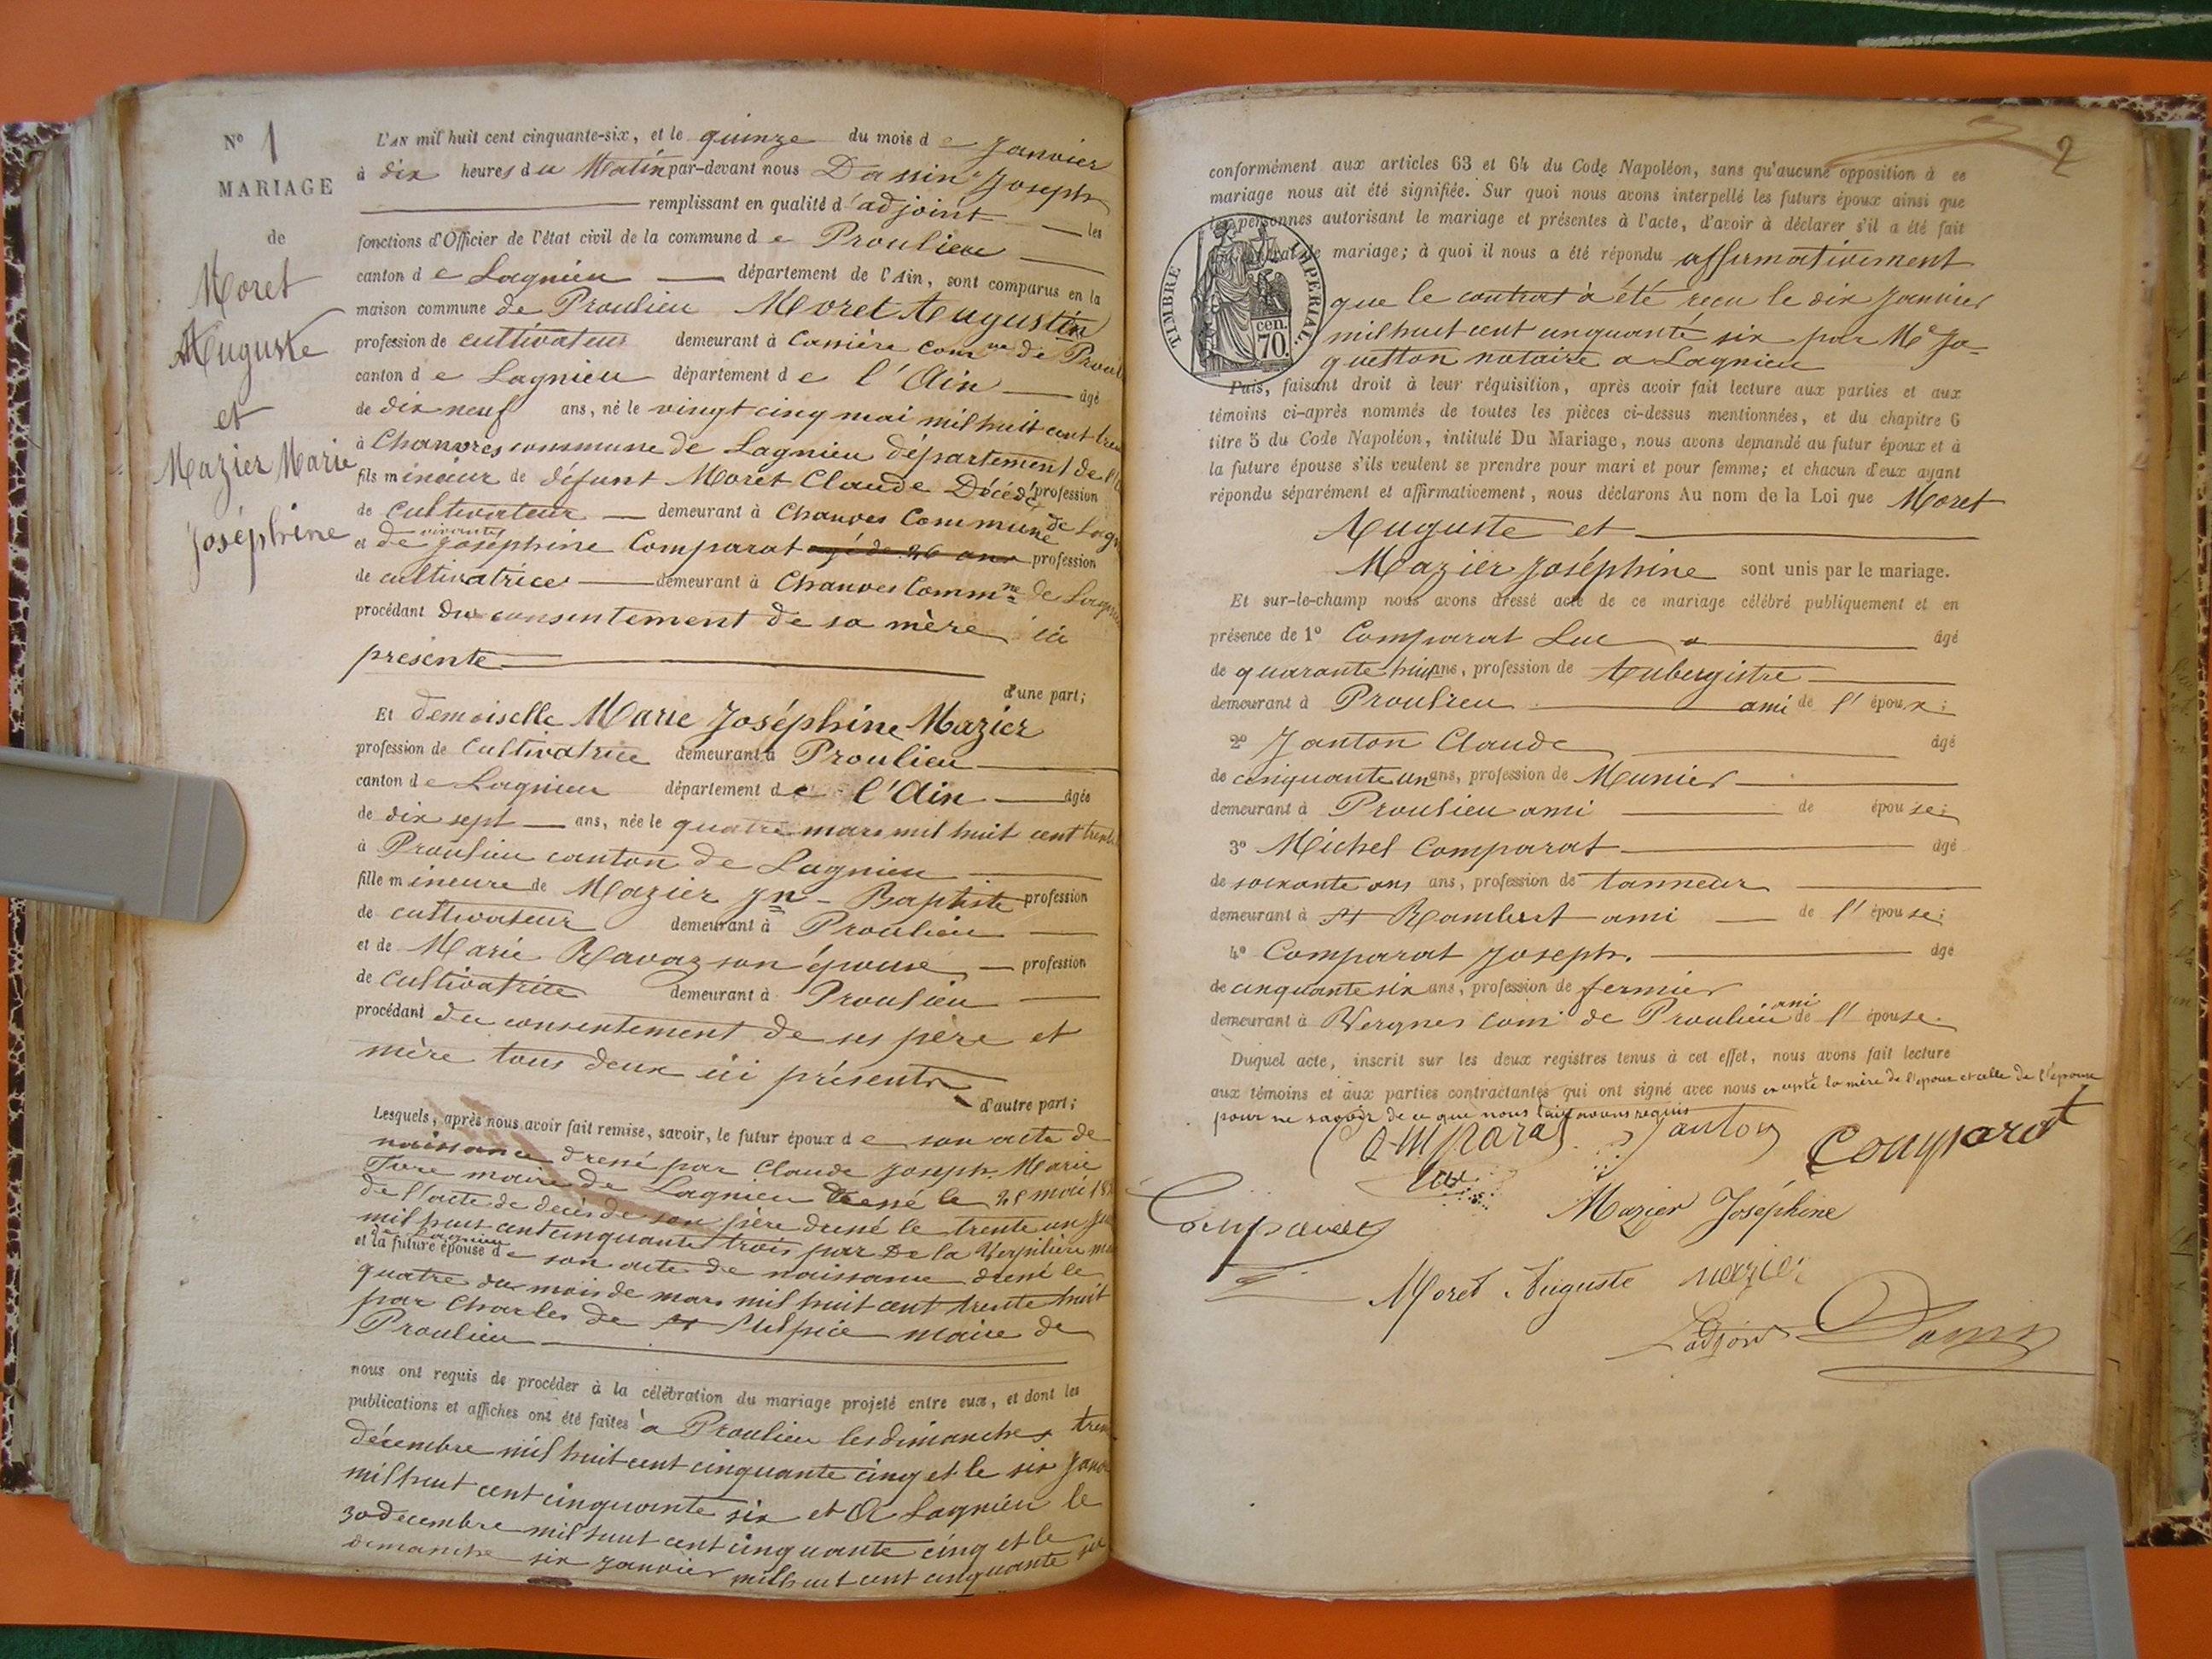 Nº 1
MARIAGE
de
Moret
Auguste
et
Mazier Marie
Joséphine
L'AN mil huit cent cinquante-six, et le quinze du mois de Janvier
à dix heures du Matin par-devant nous Dassin Joseph
remplissant en qualité d'adjoint les
fonctions d'Officier de l'état civil de la commune de Proulieu
canton de Lagnieu département de l'Ain, sont comparus en la
maison commune de Proulieu Moret Augustin
profession de cultivateur demeurant à Carrière comne de
canton de Lagnieu département de l'Ain âgé
de dix neuf ans, né le vingt cinq mai mil huit cent
à Chanves commune de Lagnieu département de
fils mineur de défunt Moret Claude Décédé profession
de cultivateur demeurant à Chanves Commune de
et de vivante Joséphine Comparat agé de 26 ans profession
de cultivatrice demeurant à Chanves Commne de
procédant du consentement de sa mère ici
présente
d'une part;
Et demoiselle Marie Joséphine Mazier
profession de Cultivatrice demeurant à Proulieu
canton de Lagnieu département de l'Ain âgée
de dix sept ans, née le quatre mars mil huit cent
à Proulieu canton de Lagnieu
fille mineure de Mazier Jn-Baptiste profession
de cultivateur demeurant à Proulieu
et de Marie Ravaz son épouse profession
de cultivatrice demeurant à Proulieu
procédant du consentement de ses père et
mère tous deux ici présents
d'autre part;
Lesquels, après nous avoir fait remise, savoir, le futur époux de son acte de
naissance dressé par Claude Joseph Marie
maire de Lagnieu dressé le mai
de l'acte de décès de son père dressé le trente un
mil huit cent cinquante trois par De la Verpilière
de Lagnieu
et la future épouse de son acte de naissance dressé le
quatre du mois de mars mil huit cent trente huit
par Charles de St Sulpice maire de
Proulieu
nous ont requis de procéder à la célébration du mariage projeté entre eux, et dont les
publications et affiches ont été faites à Proulieu les dimanches
décembre mil huit cent cinquante cinq et le six
mil huit cent cinquante six et à Lagnieu le
30 decembre mil huit cent cinquante cinq et le
dimanche six janvier mil huit cent cinquante six
2
conformément aux articles 63 et 64 du Code Napoléon, sans qu'aucune opposition à ce
mariage nous ait été signifiée. Sur quoi nous avons interpellé les futurs époux ainsi que
les personnes autorisant le mariage et présentes à l'acte, d'avoir à déclarer s'il a été fait
contrat de mariage; à quoi il nous a été répondu affirmativement
TIMBRE IMPÉRIAL
cen.
70.
que le contrat à été reçu le dix Janvier
mil huit cent cinquante six par Me Ja-
quetton notaire a Lagnieu
Puis, faisant droit à leur réquisition, après avoir fait lecture aux parties et aux
témoins ci-après nommés de toutes les pièces ci-dessus mentionnées, et du chapitre 6
titre 5 du Code Napoléon, intitulé Du Mariage, nous avons demandé au futur époux et à
la future épouse s'ils veulent se prendre pour mari et pour femme; et chacun d'eux ayant
répondu séparément et affirmativement, nous déclarons Au nom de la Loi que Moret
Auguste et
Mazier Joséphine sont unis par le mariage.
Et sur-le-champ nous avons dressé acte de ce mariage célébré publiquement et en
présence de 1º Comparat Luc âgé
de quarante huit ans, profession de Aubergistre
demeurant à Proulieu ami de l'époux;
2º Janton Claude âgé
de cinquante un ans, profession de Meunier
demeurant à Proulieu ami de épouse;
3º Michel Comparat âgé
de soixante ans ans, profession de tanneur
demeurant à St Rambert ami de l'épouse;
4º Comparat Joseph. âgé
de cinquante six ans, profession de fermier
demeurant à Vergnes com de Proulieu ami de l'épouse.
Duquel acte, inscrit sur les deux registres tenus à cet effet, nous avons fait lecture
aux témoins et aux parties contractantes qui ont signé avec nous excepté la mère de l'epoux et celle de l'epouse
pour ne savoir de ce que nous avons requis
Comparat Janton Comparat
Luc
Mazier Joséphine
Comparat
Moret Auguste mazier
L'adjoint Dassin